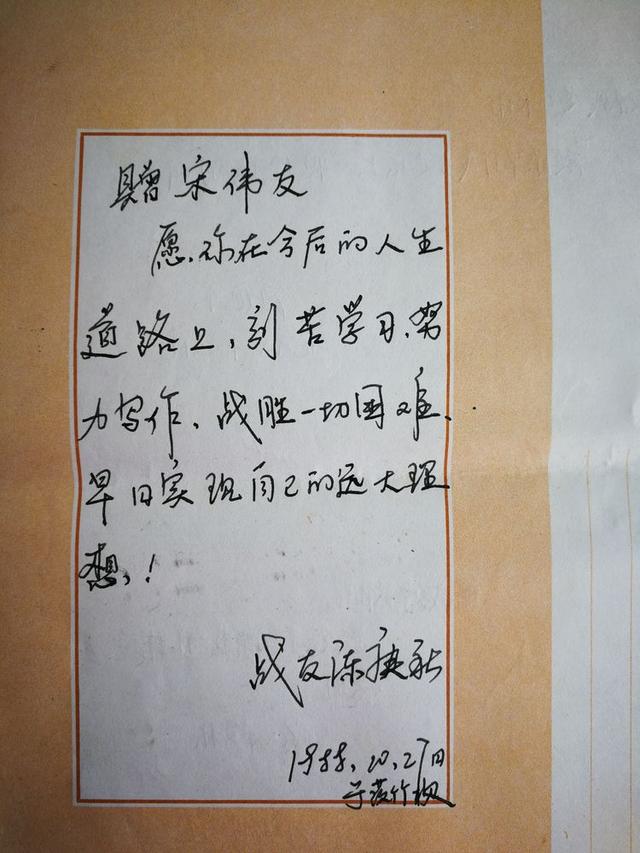 赠宋伟友
愿你在今后的人生
道路上,刻苦学习、努
力写作、战胜一切困难、
早日实现自己的远大理
想!
战友陈庚
1988.10.27日
于